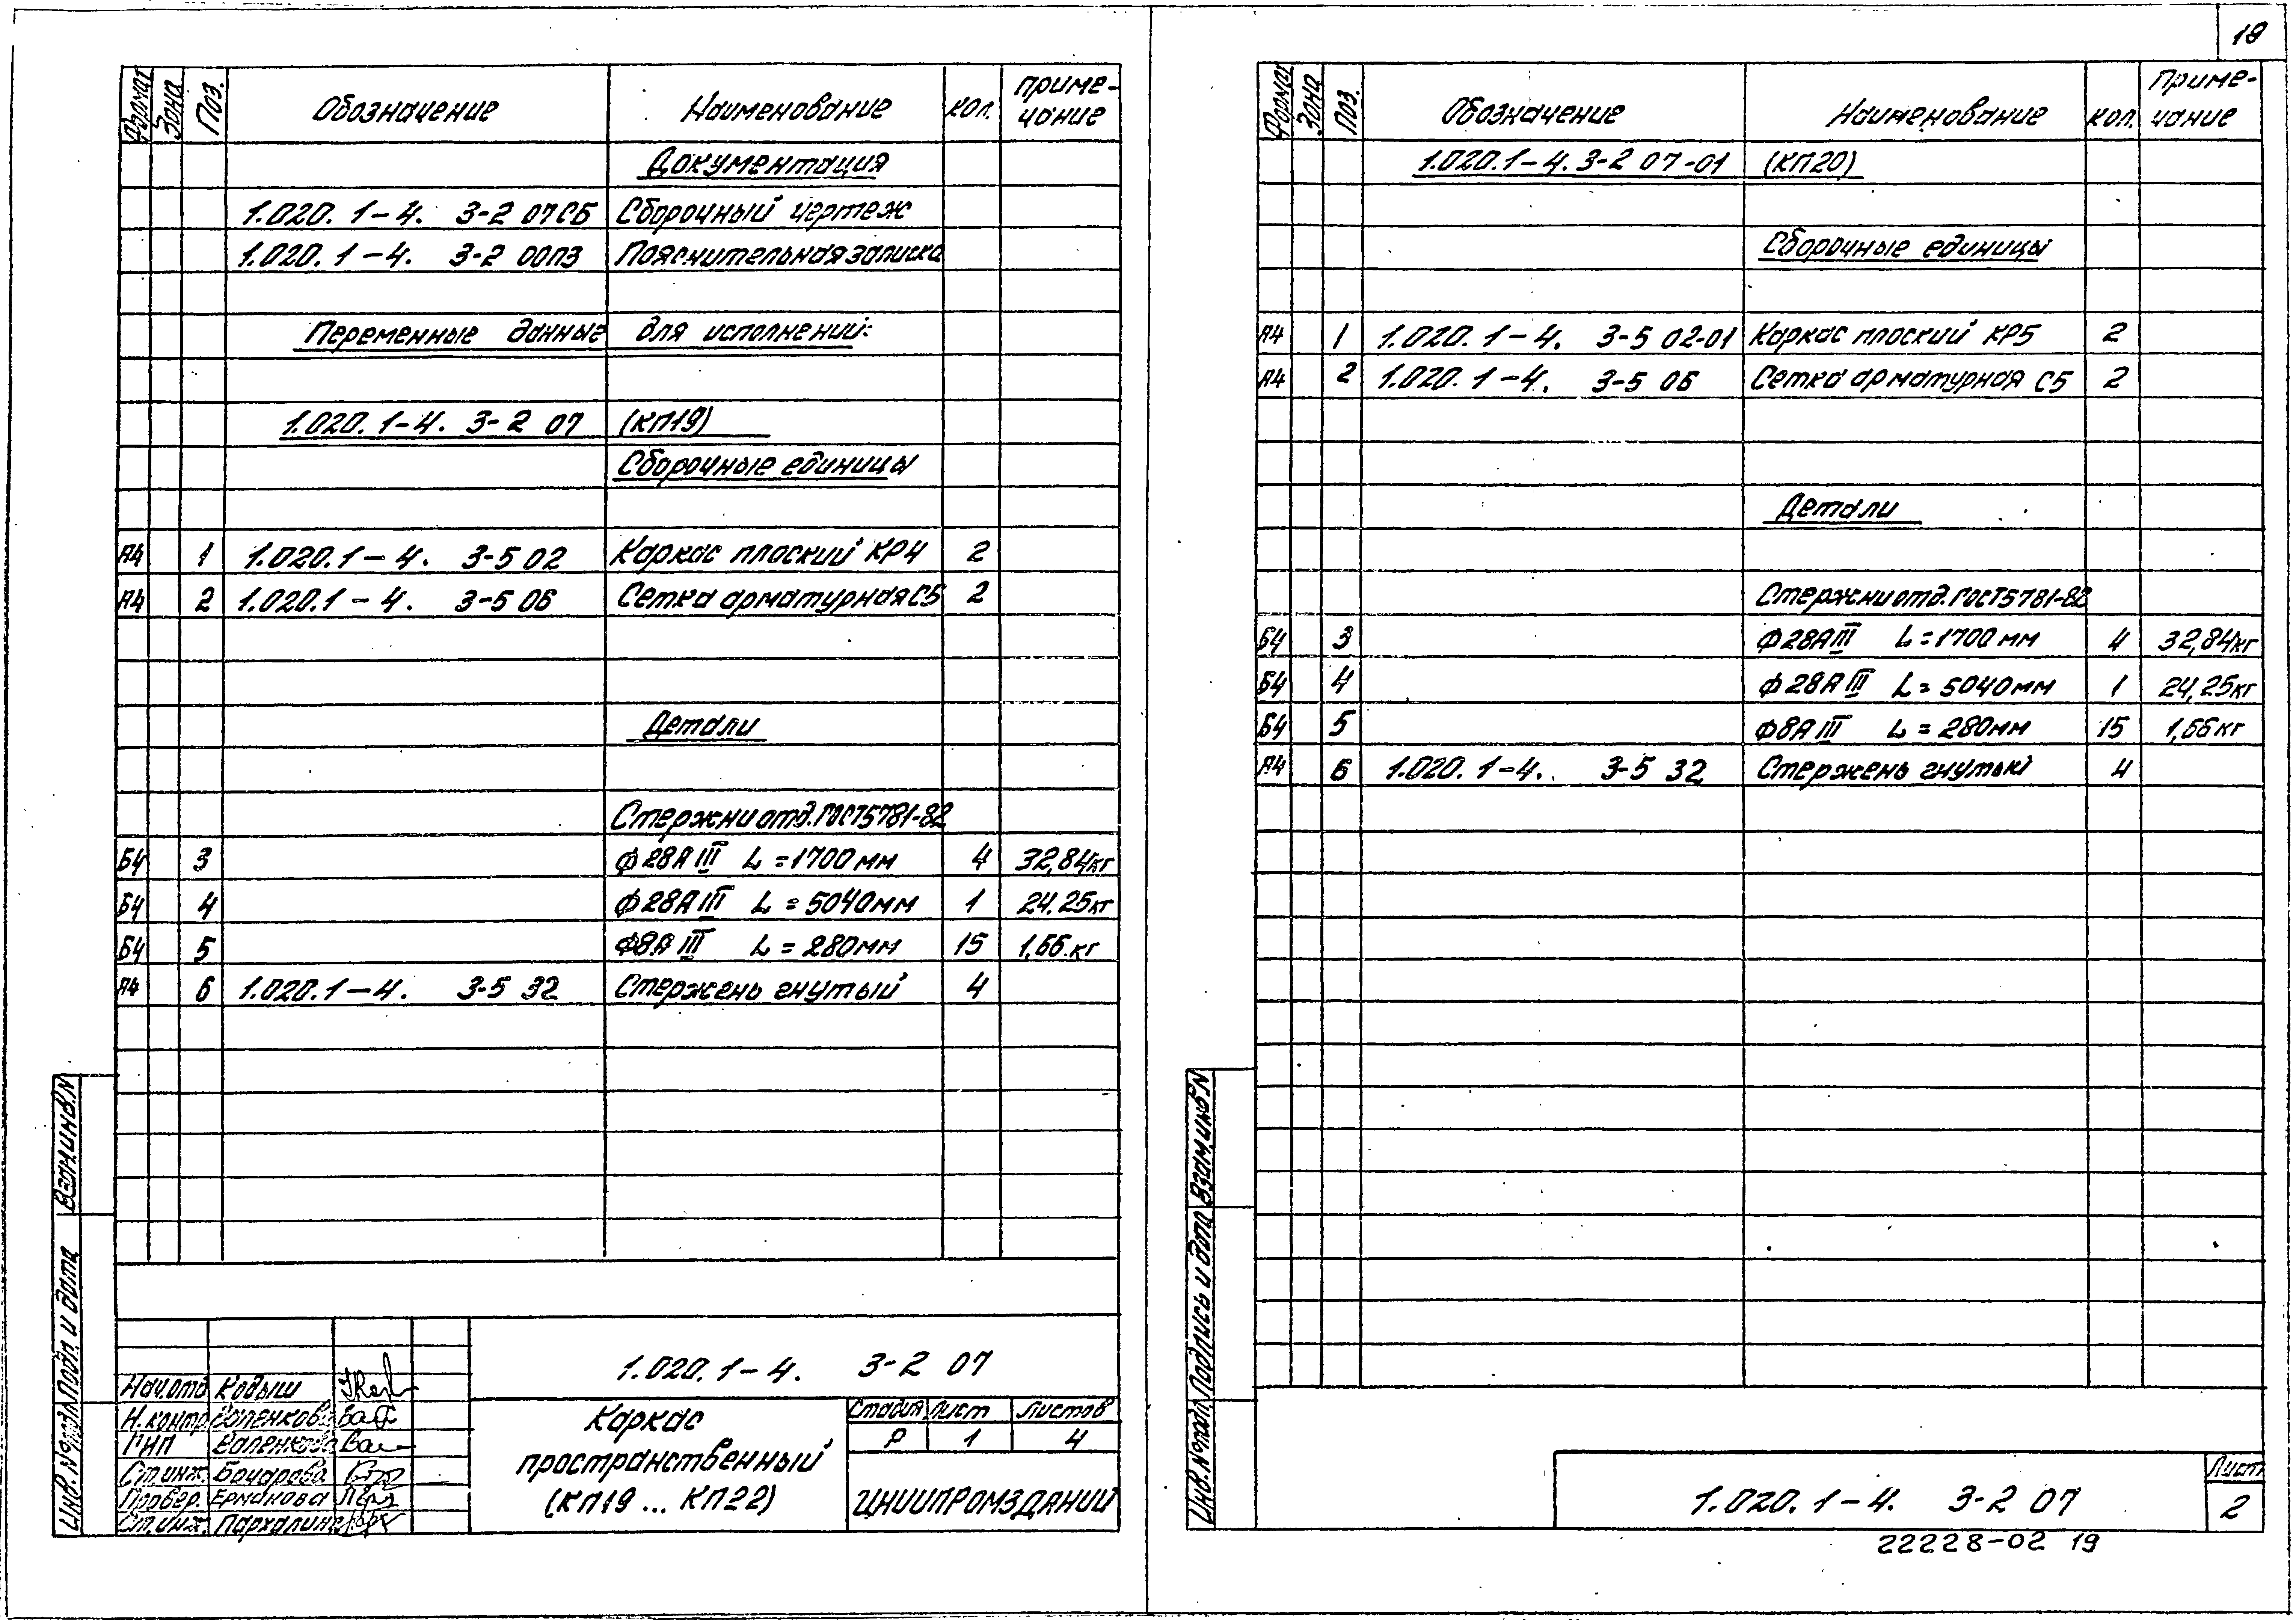 18
Формат Зона Поз. Обозначение Наименование кол. приме-чание
Документация
1.020. 1-4. 3-2 07СБ Сборочный чертеж
1.020. 1-4. 3-2 00ПЗ Пояснительная записка
Переменные данные для исполнений:
1.020. 1-4. 3-2 07 (КП19)
Сборочные единицы
А4 1 1.020.1-4. 3-5 02 Каркас плоский КР4 2
А4 2 1.020.1-4. 3-5 06 Сетка арматурная С5 2
Детали
Стержни отд. ГОСТ5781-82
Б4 3 Ф28АIII L=1700мм 4 32,84кг
Б4 4 Ф28АIII L=5040мм 1 24.25кг
Б4 5 Ф8АIII L=280мм 15 1,66.кг
А4 6 1.020.1-4. 3-5 32 Стержень гнутый 4
Инв.№подл. Подп. и дата Взам.инв.N
1.020. 1-4. 3-2 07
Нач.отд Кодыш
Н.контр. Валенкова
ГИП Валенкова
Ст.инж. Бочарова
Провер. Ермакова
Ст.инж.
Каркас
пространственный
(КП19 ... КП22)
Стадия Лист Листов
Р 1 4
ЦНИИПРОМЗДАНИИ
Формат Зона Поз. Обозначение Наименование кол. Приме-чание
1.020.1-4. 3-2 07-01 (КП20)
Сборочные единицы
А4 1 1.020. 1-4. 3-5 02-01 Каркас плоский КР5 2
А4 2 1.020. 1-4. 3-5 06 Сетка арматурная С5 2
Детали
Стержни отд. ГОСТ5781-82
Б4 3 Ф28АIII L=1700мм 4 32,84кг
Б4 4 Ф28АIII L=5040мм 1 24,25кг
Б4 5 Ф8АIII L=280мм 15 1,66кг
А4 6 1.020. 1-4. 3-5 32 Стержень гнутый 4
Инв.№подл. Подпись и дата Взам.инв.N
1.020. 1-4. 3-2 07
Лист
2
22228-02 19